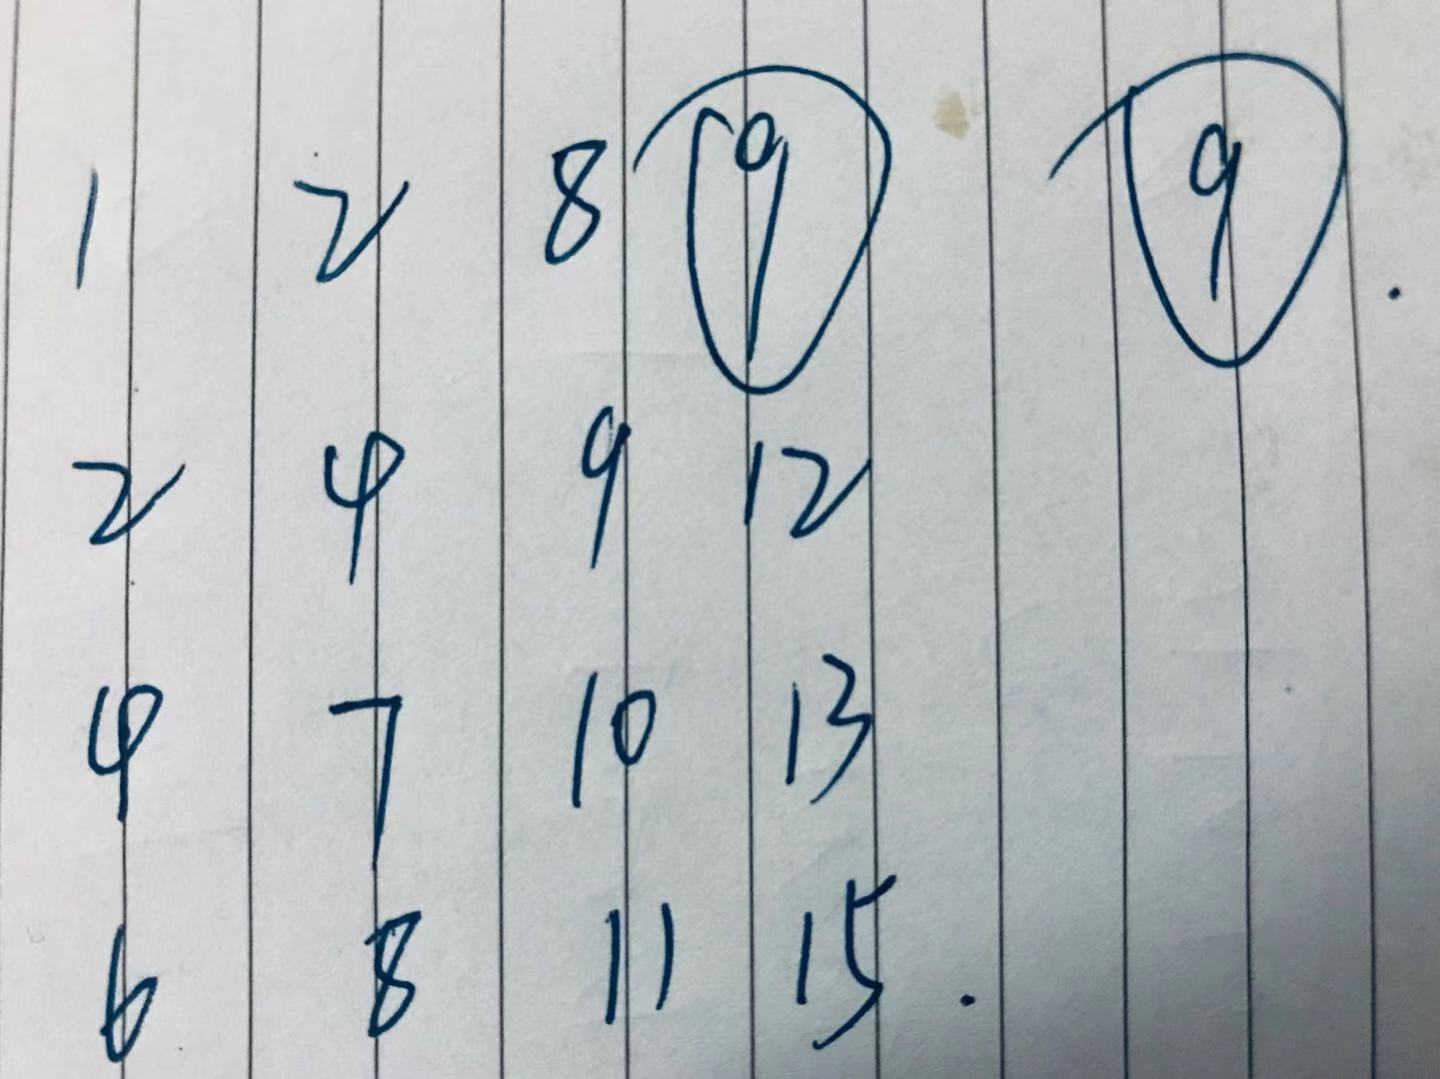 1 2 8 9 9
2 4 9 12
4 7 10 13
6 8 11 15